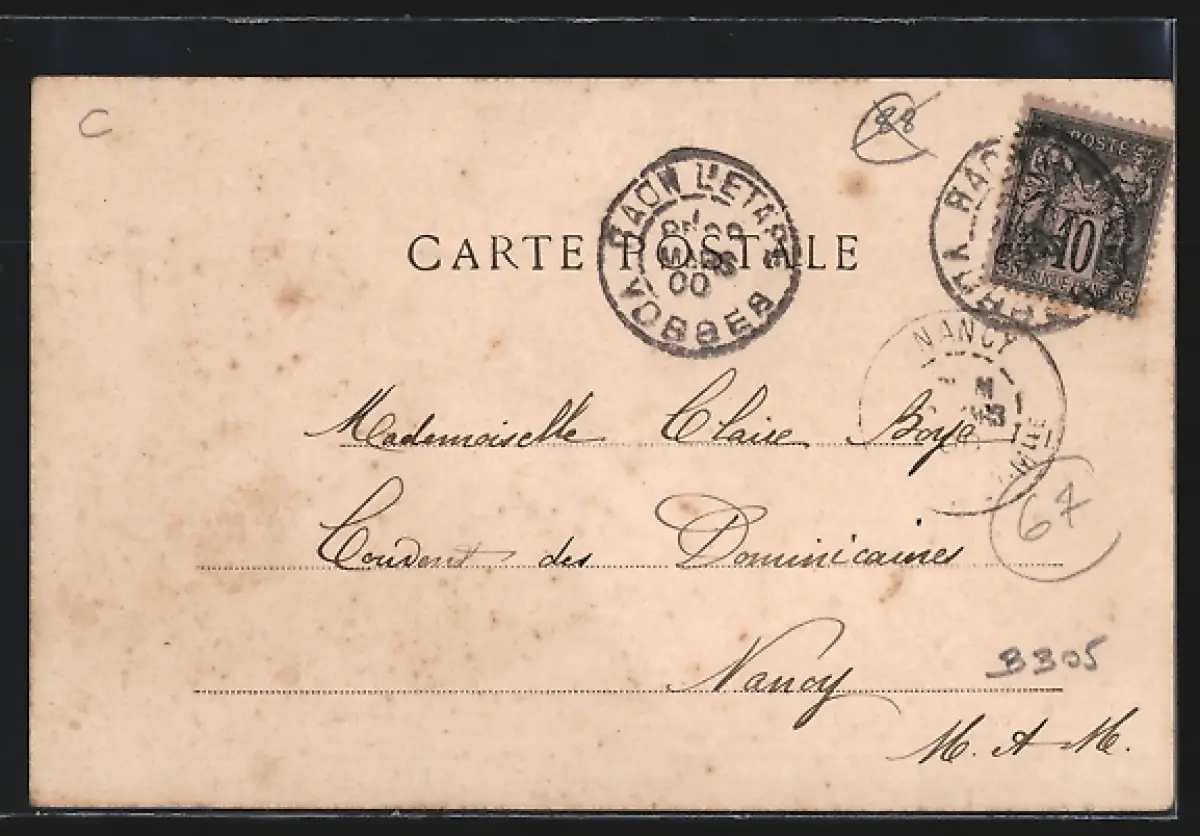 C
88
POSTE
10
CARTE POSTALE
RAON L'ETAPE
MARS
00
VOSGES
NANCY
Mademoiselle Claire Boyé
Couvent des Dominicaines
67
Nancy
3305
M. & M.